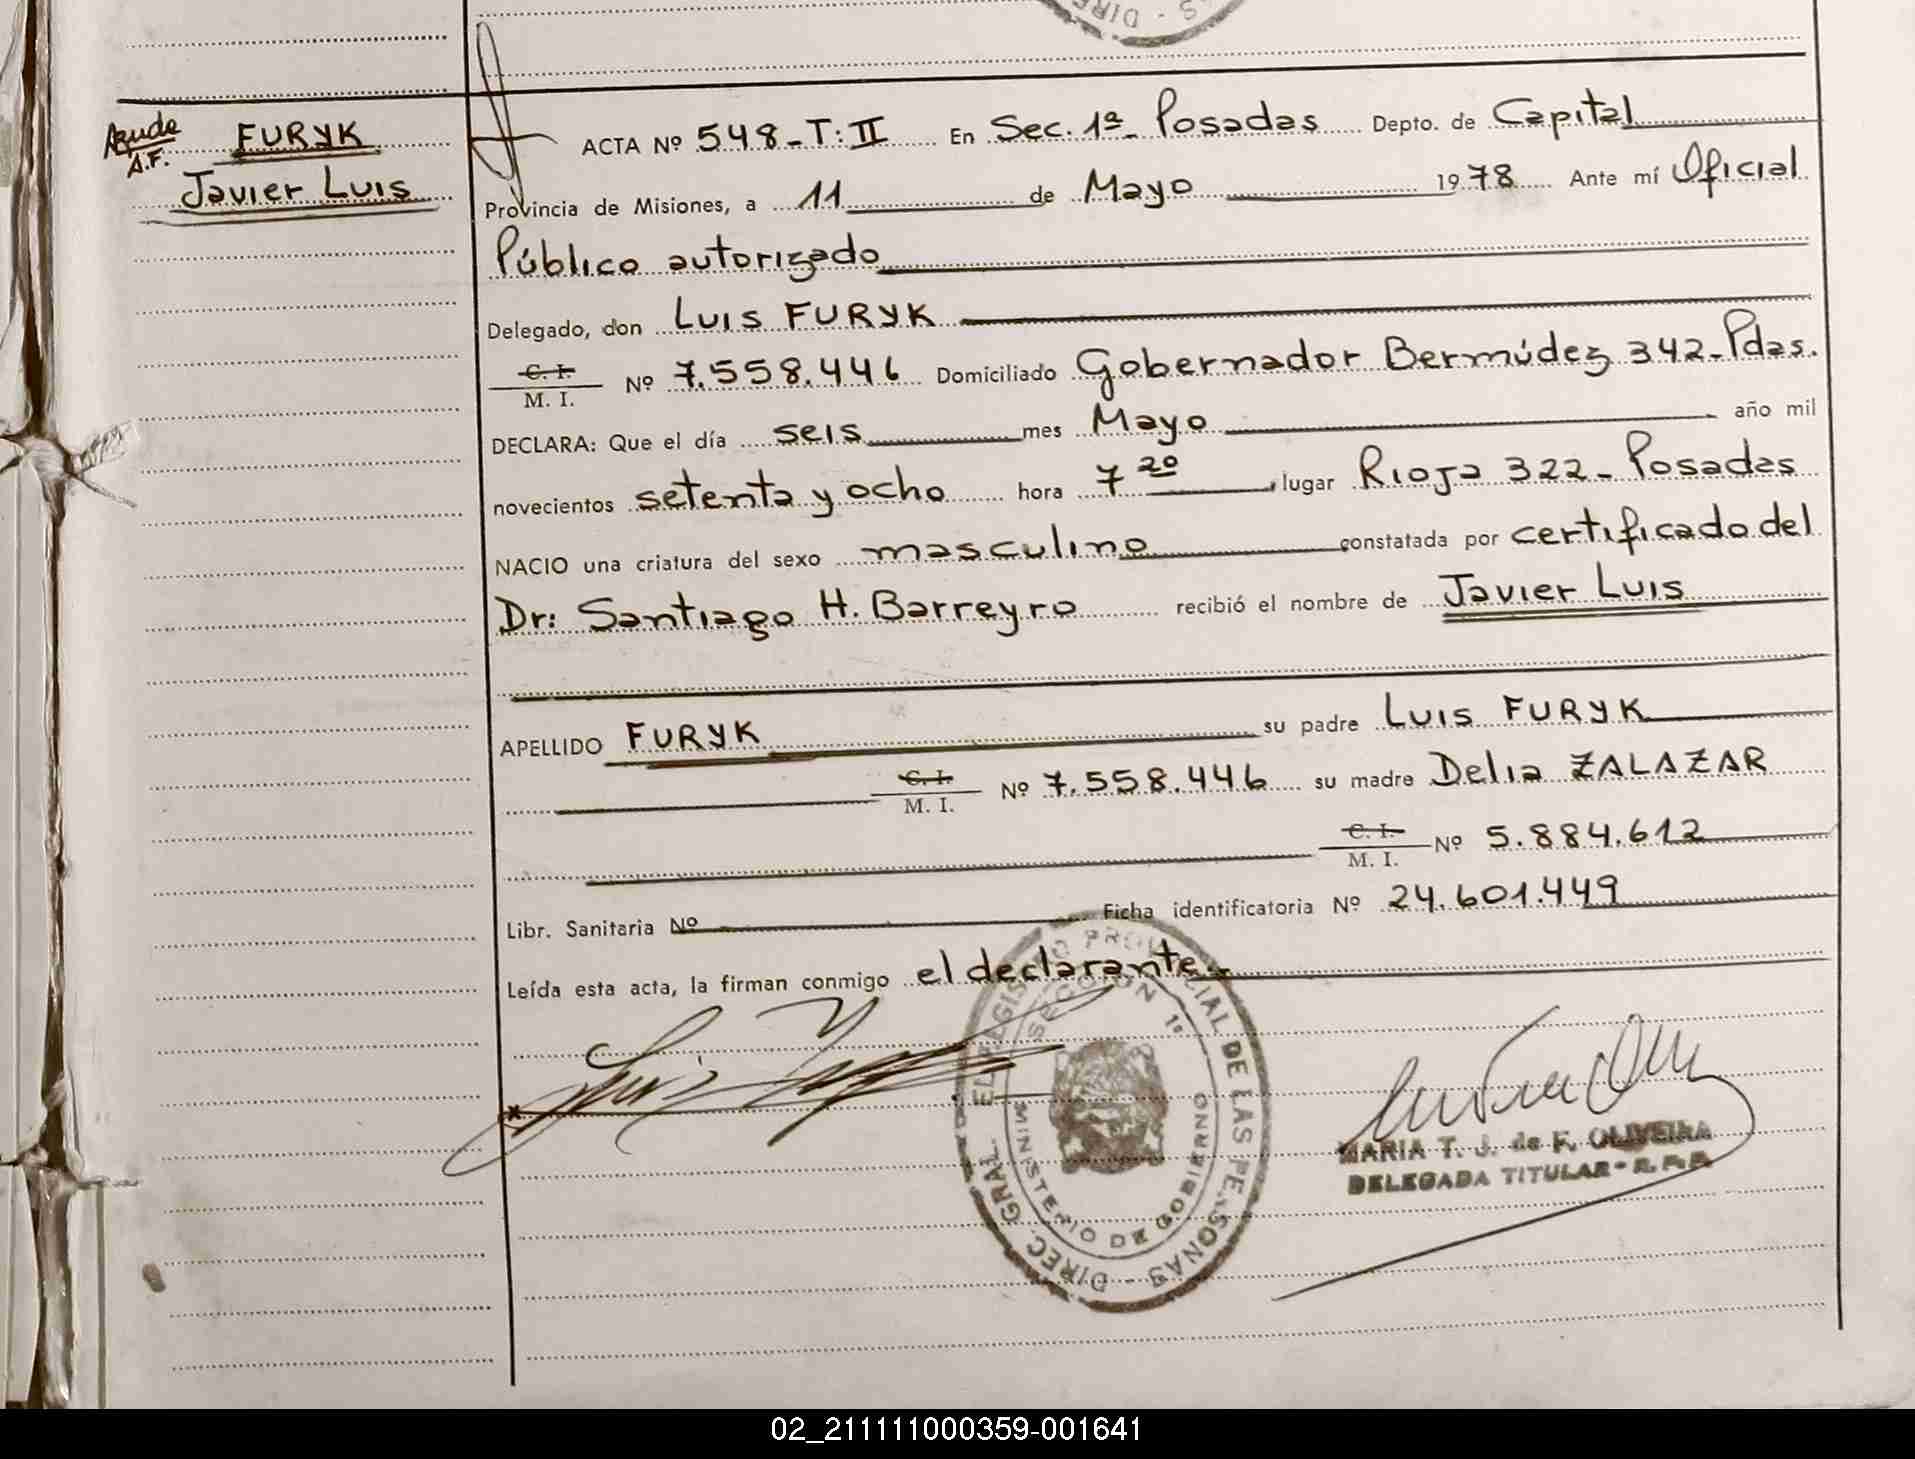 DIREC
FURYK
A.F.
Javier Luis
ACTA Nº 548-T:II En Sec. 1ª - Posadas Depto. de Capital
Provincia de Misiones, a 11 de Mayo 1978 Ante mí Oficial
Público autorizado
Delegado, don Luis FURYK
C. I. Nº 7.558.446 Domiciliado Gobernador Bermúdez 342-Pdas.
M. I.
DECLARA: Que el día seis mes Mayo año mil
novecientos setenta y ocho hora 7 20 lugar Rioja 322- Posadas
NACIO una criatura del sexo masculino constatada por certificado del
Dr: Santiago H. Barreyro recibió el nombre de Javier Luis
APELLIDO FURYK su padre Luis FURYK
C. I. Nº 7.558.446 su madre Delia ZALAZAR
M. I.
C. I. Nº 5.884.612
M. I.
Libr. Sanitaria Nº Ficha identificatoria Nº 24.601.449
Leída esta acta, la firman conmigo el declarante
DIREC. GRAL. DEL REGISTRO PROVINCIAL DE LAS PERSONAS
SECCION 1ª
MINISTERIO DE GOBIERNO
MARIA T. J. de F. OLIVEIRA
DELEGADA TITULAR - R.P.P.
02_211111000359-001641